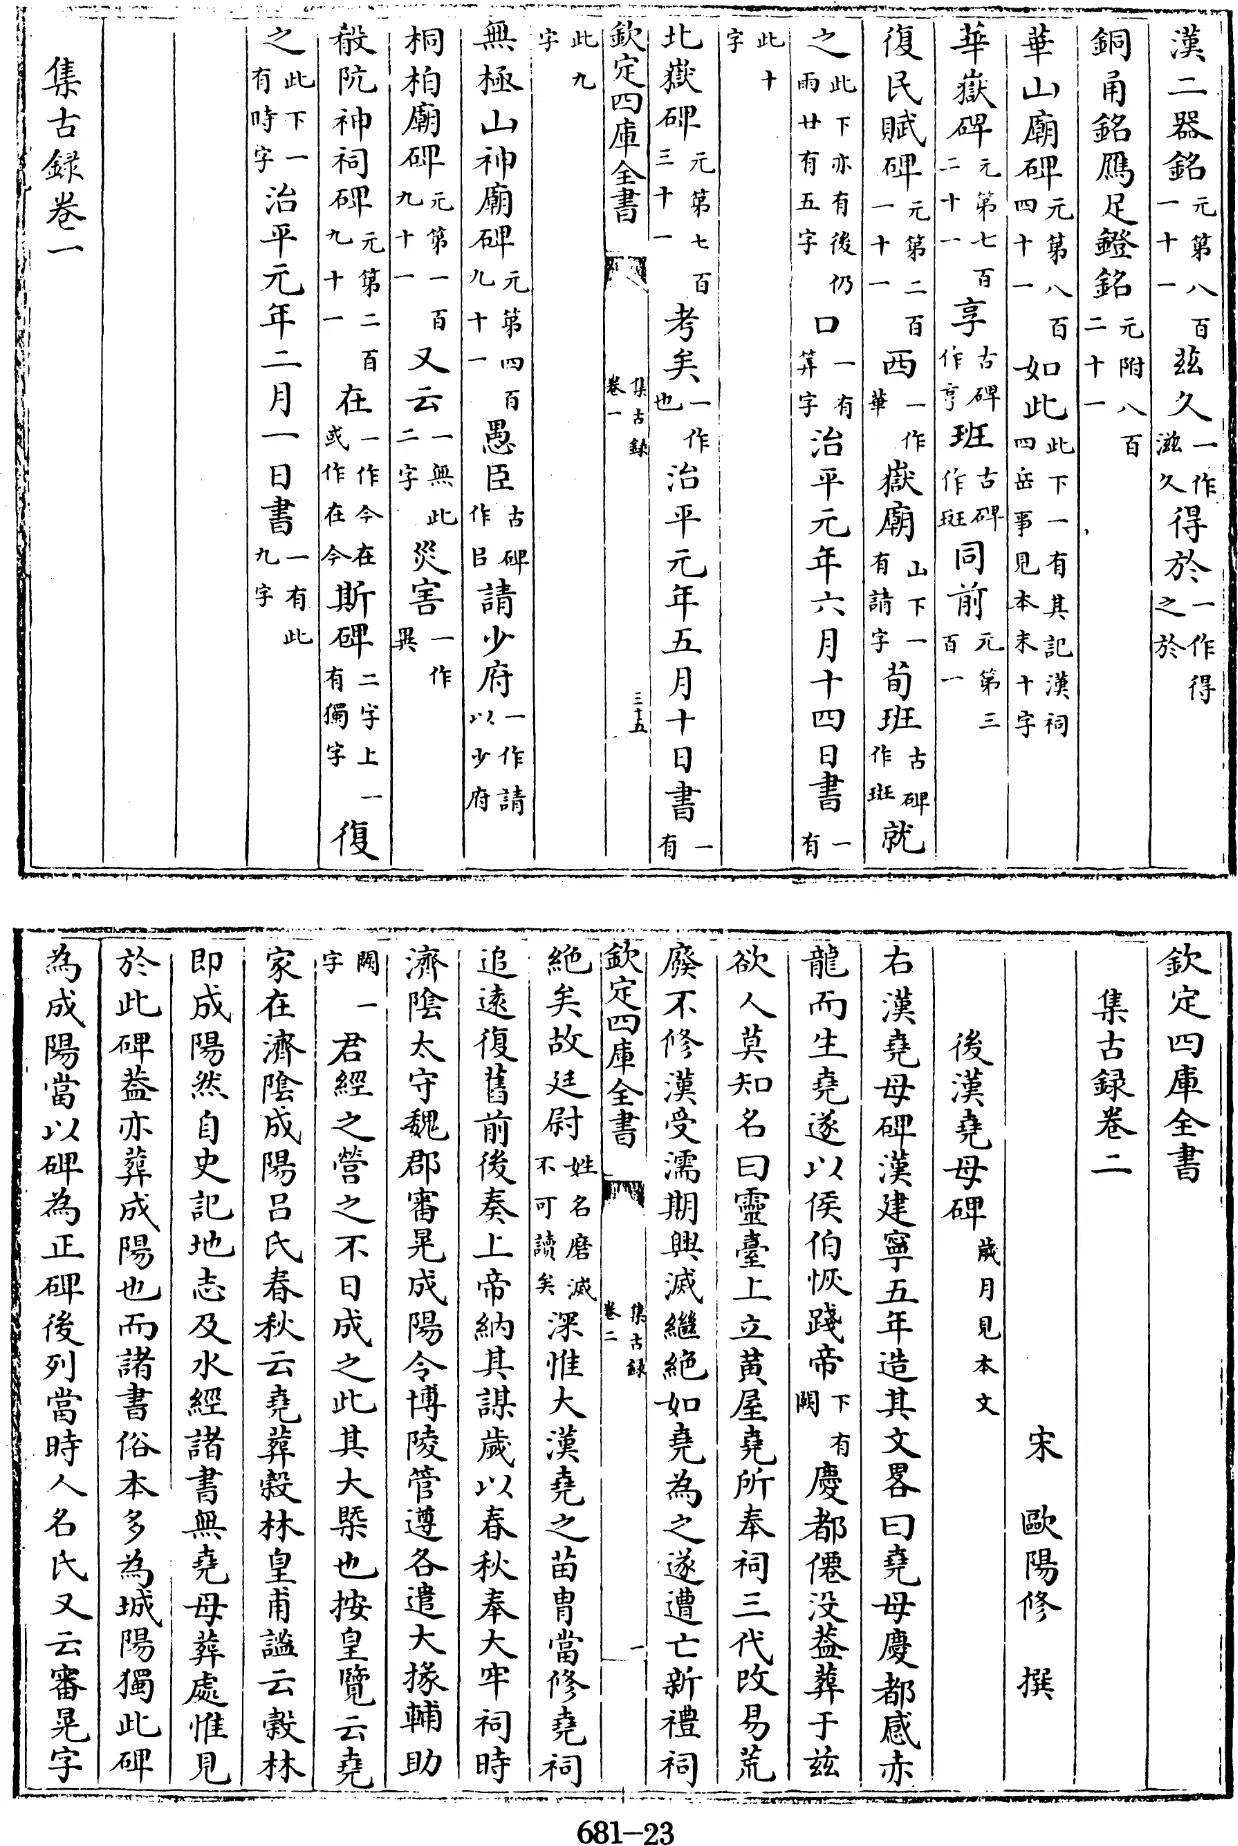 漢二器銘元第八百一十一兹久一作滋久得於一作得之於
銅甬銘鴈足鐙銘元附八百二十一
華山廟碑元第八百四十一如此此下一有其記漢祠四岳事見本末十字
華嶽碑元第七百二十一享古碑作亨班古碑作斑同前元第三百一
復民賦碑元第二百一十一西一作華嶽廟山下一有請字荀班古碑作斑就
之此下亦有後仍雨廿有五字口一有筭字治平元年六月十四日書一有
此十字
北嶽碑元第七百三十一考矣一作也治平元年五月十日書一有
欽定四庫全書 集古録卷一 三十五
此九字
無極山神廟碑元第四百九十一愚臣古碑作㠯請少府一作請以少府
桐柏廟碑元第一百九十一又云一無此二字災害一作異
殽阬神祠碑元第二百九十一在一作今在或作在今斯碑二字上一有獨字復
之此下一有時字治平元年二月一日書一有此九字
集古録卷一
欽定四庫全書
集古録卷二
宋 歐陽修 撰
後漢堯母碑歲月見本文
右漢堯母碑漢建寧五年造其文畧曰堯母慶都感赤
龍而生堯遂以侯伯恢踐帝下有闕慶都僊没葢葬于兹
欲人莫知名曰靈臺上立黄屋堯所奉祠三代改易荒
廢不修漢受濡期興滅繼絶如堯為之遂遭亡新禮祠
欽定四庫全書 集古録卷二 一
絶矣故廷尉姓名磨滅不可讀矣深惟大漢堯之苗胄當修堯祠
追遠復舊前後奏上帝納其謀歲以春秋奉大牢祠時
濟隂太守魏郡審晃成陽令博陵管遵各遣大掾輔助
闕一字君經之營之不日成之此其大槩也按皇覽云堯
家在濟隂成陽吕氏春秋云堯葬穀林皇甫謐云穀林
即成陽然自史記地志及水經諸書無堯母葬處惟見
於此碑葢亦葬成陽也而諸書俗本多為城陽獨此碑
為成陽當以碑為正碑後列當時人名氏又云審晃字
681-23